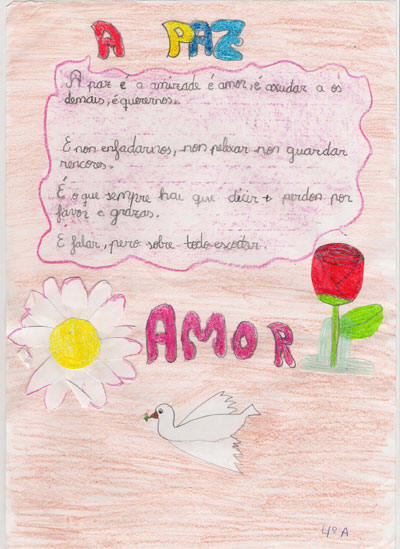 A PAZ
A paz é a amizade é amor, é axudar a os
demais, é querernos.
E non enfadarnos, non pelexar non guardar
rencores.
É o que sempre hai que dicir + perdon por
favor e grazas.
E falar, pero sobre todo escoitar.
AMOR
4º A